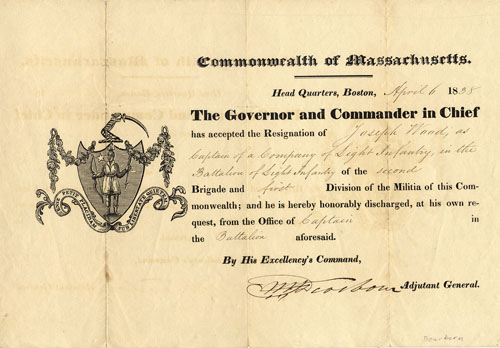 Commonwealth of Massachusetts.
Head Quarters, Boston, April 6 1838
The Governor and Commander in Chief
has accepted the Resignation of Joseph Wood, as
Captain of a Company of Light Infantry, in the
Battalion of Light Infantry of the second
Brigade and first Division of the Militia of this Com-
monwealth; and he is hereby honorably discharged, at his own re-
quest, from the Office of Captain in
the Battalion aforesaid.
By His Excellency's Command,
Dearborn Adjutant General.
ENSE PETIT PLACIDAM
SUB LIBERTATE QUIETEM
Dearborn